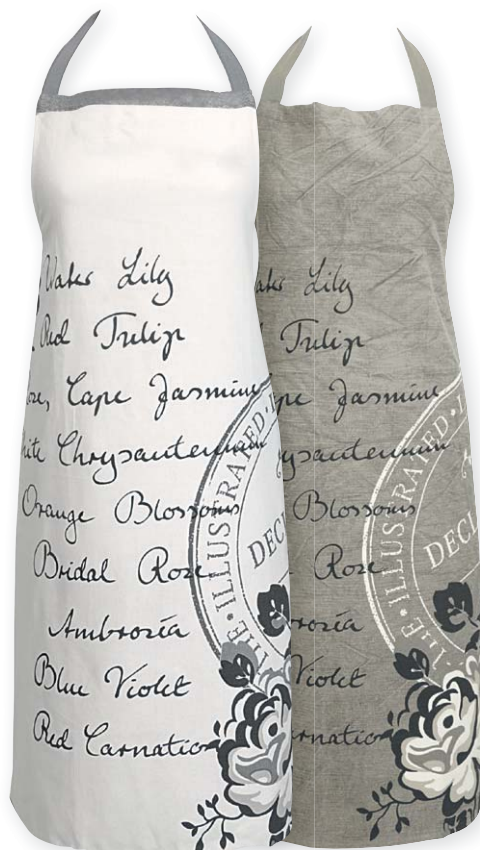 Water Lily
Red Tulip
Cape Jasmine
Chrysantemum
Orange Blossoms
Bridal Rose
Ambrozia
Blue Violet
Red Carnatio
THE • ILLUSTRATED •
DECL
Lily
Tulip
pe Jasmine
ysantemum
Blossoms
Rose
rozia
Violet
rnatio
THE • ILLUSTRATED •
DECL